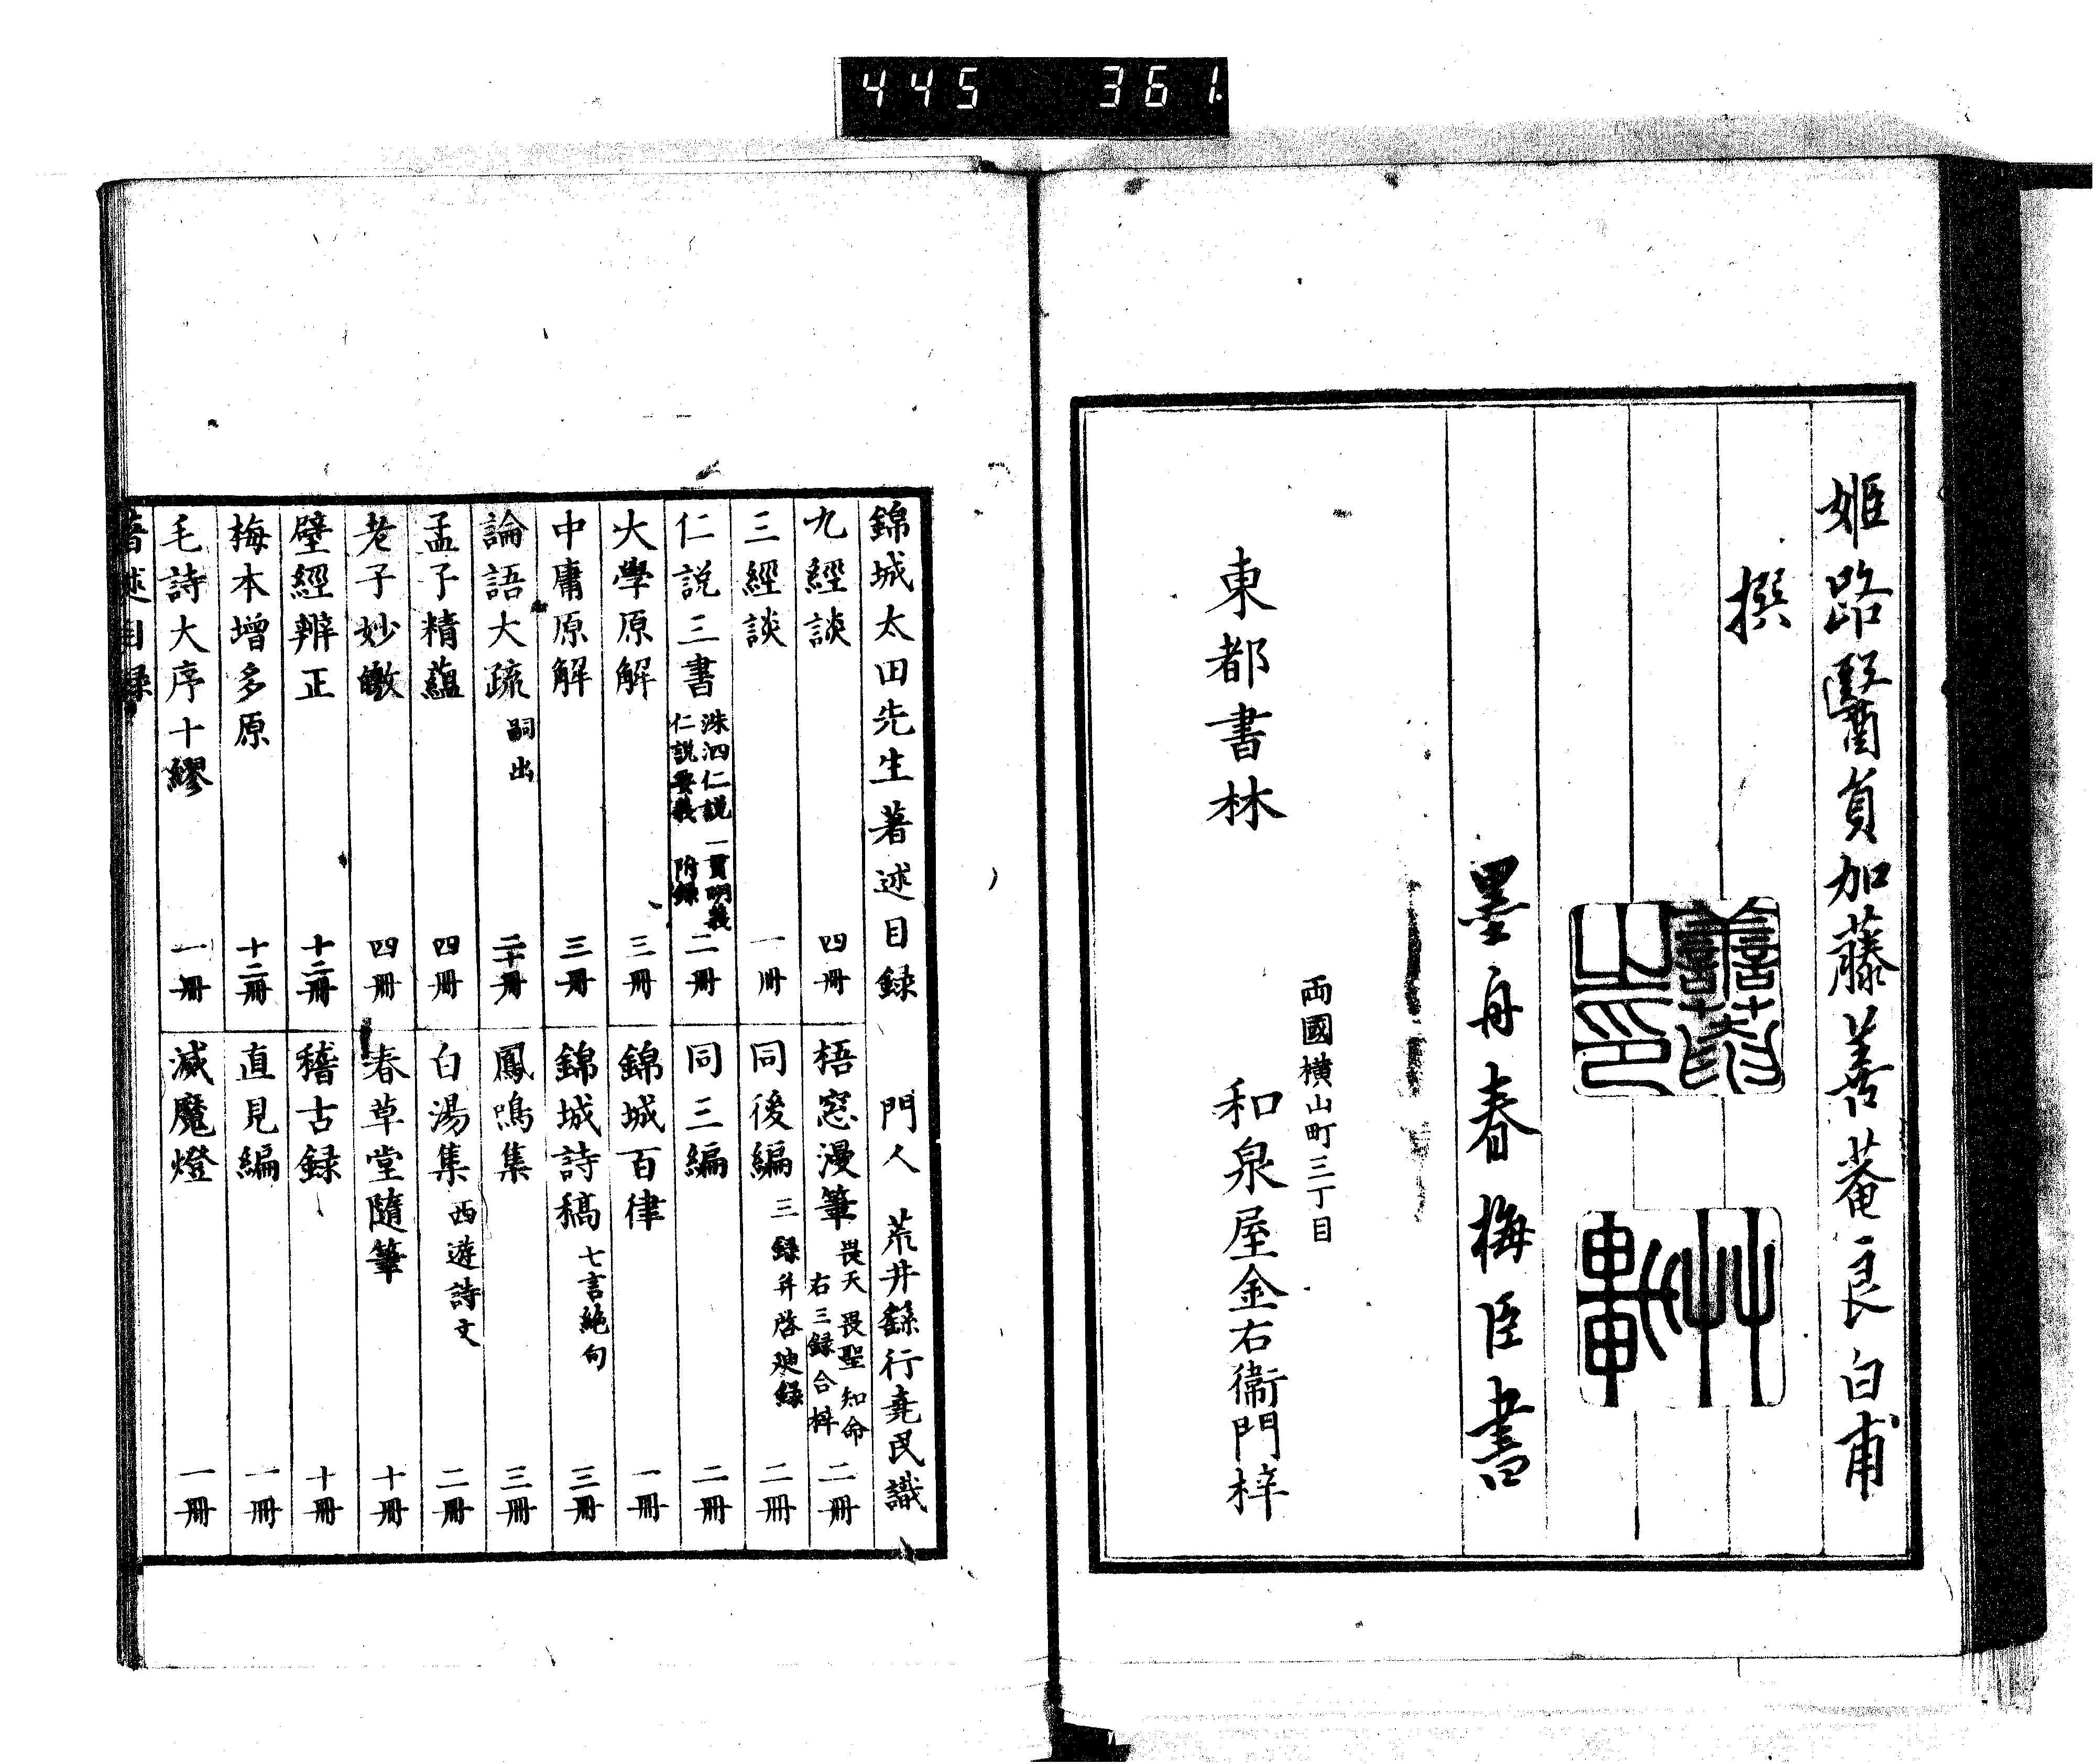 445 361
姫路醫員加藤善菴良白甫
撰
墨舟春梅臣書
東都書林
兩國横山町三丁目
和泉屋金右衞門梓
錦城太田先生著述目録 門人 荒井繇行堯民識
九經談 四冊
梧窓漫筆 畏天 畏聖 知命
右三録合梓 二冊
三經談 一冊
同後編 三録并啓 二冊
仁説三書 洙泗仁説 一貫明義
仁説要義 附録 二冊
同三編 二冊
大學原解 三冊
錦城百律 一冊
中庸原解 三冊
錦城詩稿 七言絶句 三冊
論語大疏 嗣出 二十冊
鳳鳴集 三冊
孟子精蘊 四冊
白湯集 西遊詩文 二冊
老子妙皦 四冊
春草堂隨筆 十冊
壁經辨正 十二冊
稽古録 十冊
梅本增多原 十二冊
直見編 一冊
毛詩大序十繆 一冊
滅魔燈 一冊
著述目録